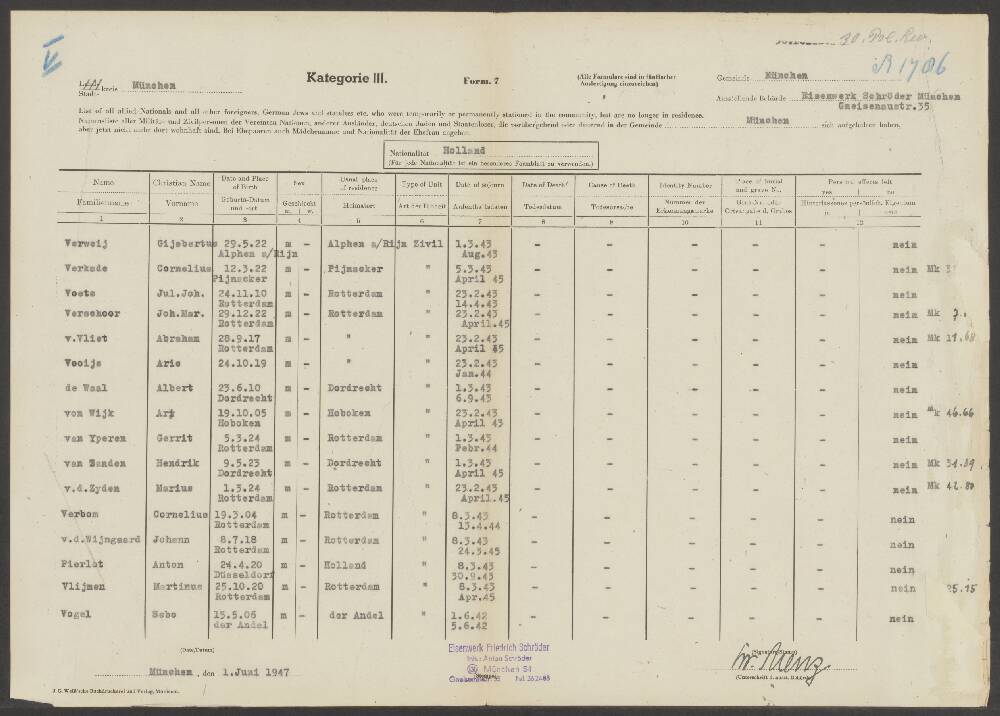 V
30. Pol. Rev.
R 1706
Kategorie III.
Form. 7
(Alle Formulare sind in fünffacher
Ausfertigung einzureichen)
Stadt- kreis München
Gemeinde München
Ausstellende Behörde Eisenwerk Schröder München
Gneisenaustr.35
List of all allied Nationals and all other foreigners, German Jews and stateless etc. who were temporarily or permanently stationed in the community, but are no longer in residence.
Namensliste aller Militär- und Zivilpersonen der Vereinten Nationen, anderer Ausländer, deutschen Juden und Staatenloser, die vorübergehend oder dauernd in der Gemeinde München sich aufgehalten haben,
aber jetzt nicht mehr dort wohnhaft sind. Bei Ehepaaren auch Mädchenname und Nationalität der Ehefrau angeben.
Nationalität Holland
(Für jede Nationalität ist ein besonderes Formblatt zu verwenden.)
Name Christian Name Date and Place of Birth Sex Usual place of residence Type of Unit Date of sojourn Date of Death Cause of Death Identity Number Place of burial and grave No. Personal effects left yes no
Familienname Vorname Geburts-Datum und -ort Geschlecht m. w. Heimatort Art der Einheit Aufenthaltsdaten Todesdatum Todesursache Nummer der Erkennungsmarke Hinterlassenes persönlich. Eigentum nein
1 2 3 4 5 6 7 8 9 10 11 12
Verweij Gijsbertus 29.5.22 m - Alphen a/Rijn Zivil 1.3.43 - - - - - nein
Alphen a/Rijn Aug.43
Verkade Cornelius 12.3.22 m - Pijnacker " 5.3.43 - - - - - nein Mk
Pijnacker April 45
Voets Jul.Joh. 24.11.10 m - Rotterdam " 23.2.43 - - - - - nein
Rotterdam 14.4.43
Verschoor Joh.Mar. 29.12.22 m - Rotterdam " 23.2.43 - - - - - nein Mk
Rotterdam April.45
v.Vliet Abraham 28.9.17 m - " " 23.2.43 - - - - - nein Mk 11.68
Rotterdam April 45
Vooijs Arie 24.10.19 m - " " 23.2.43 - - - - - nein
Jan.44
de Waal Albert 23.6.10 m - Dordrecht " 1.3.43 - - - - - nein
Dordrecht 6.9.43
von Wijk 19.10.05 m - Hoboken " 23.2.43 - - - - - nein Mk 46.66
Hoboken April 43
van Yperen Gerrit 5.3.24 m - Rotterdam " 1.3.43 - - - - - nein
Rotterdam Febr.44
van Zanden Hendrik 9.5.23 m - Dordrecht " 1.3.43 - - - - - nein Mk 31.89
Dordrecht April 45
v.d.Zyden Marius 1.3.24 m - Rotterdam " 23.2.43 - - - - - nein Mk 42.80
Rotterdam April.45
Verbom Cornelius 19.3.04 m - Rotterdam " 8.3.43 - - - - - nein
Rotterdam 13.4.44
v.d.Wijngaard Johann 8.7.18 m - Rotterdam " 8.3.43 - - - - - nein
Rotterdam 24.3.45
Pierlot Anton 24.4.20 m - Holland " 8.3.43 - - - - - nein
Düsseldorf 30.9.43
Vlijmen Martinus 25.10.20 m - Rotterdam " 8.3.43 - - - - - nein 25.15
Rotterdam Apr.45
Vogel Sebo 15.5.06 m - der Andel " 1.6.42 - - - - - nein
der Andel 5.6.42
(Date/Datum)
München, den 1.Juni 1947
Eisenwerk Friedrich Schröder
Inh.: Anton Schröder
München 54
Gneisenaustr. 35 Tel. 362483
(Signature/Stamp)
J. G. Weiß'sche Buchdruckerei und Verlag, München.